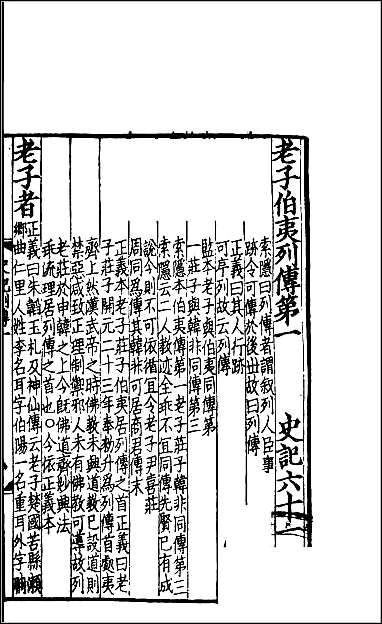 老子伯夷列傳第一 史記六十一
索隱曰列傳者謂叙列人臣事
跡令可傳於後世故曰列傳
正義曰其人行跡
可序列故云列傳
監本老子與伯夷同傳第一
莊子與韓非同傳第三
索隱本伯夷傳第一老子莊子韓非同傳第三
索隱云二人教迹全乖不宜同傳先賢已有成
說今則不可依循宜令老子尹喜莊
周同爲傳其韓非可居商君傳末
正義本老子莊子伯夷居列傳之首正義曰老
子莊子開元二十三年奉勑升爲列傳首處夷
齊上然漢武帝之時佛教未興道教已設道則
禁惡咸致正理制禦邪人未有佛教可導故列
老莊於申韓之上今旣佛道齊妙興法
乖流理居列傳之首也○今依正義本
老子者
正義曰朱韜玉札及神仙傳云老子楚國苦縣瀨
鄉曲仁里人姓李名耳字伯陽一名重耳外字聃